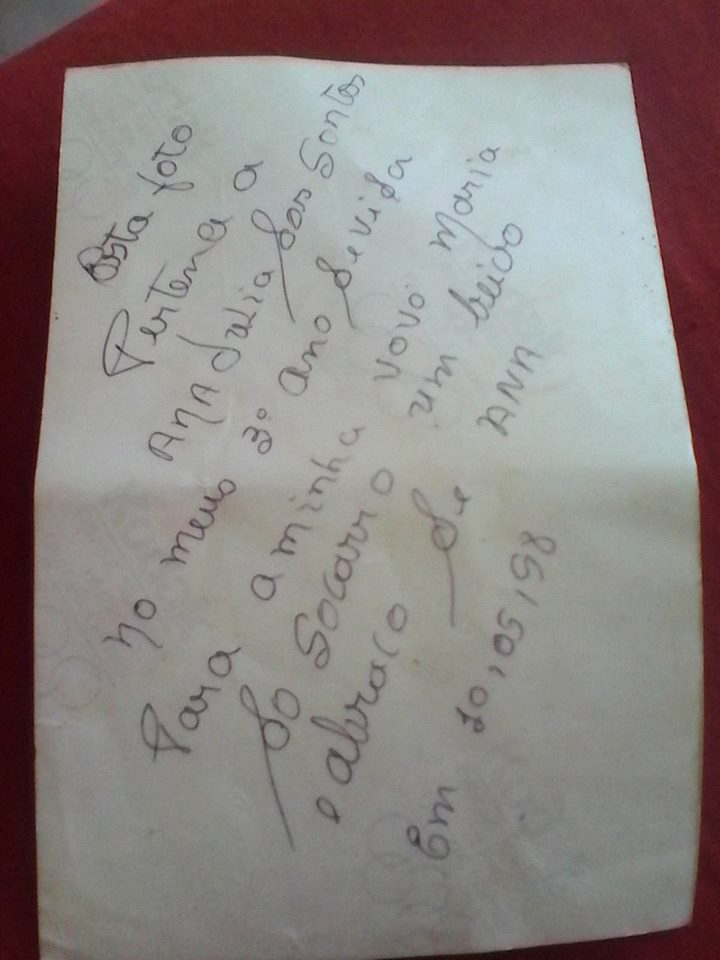 Esta foto
Pertence a
ANA Julia dos Santos
no meus 3º ano de vida
Para aminha vovó Maria
do Socarro um beiso
e abraco de ANA
Em 10,05,98